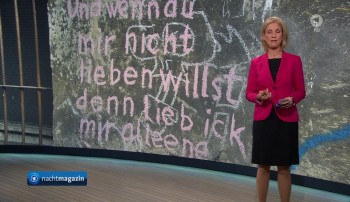 und wenn du
mir nicht
lieben willst
denn lieb ick
mir alleene
nachtmagazin